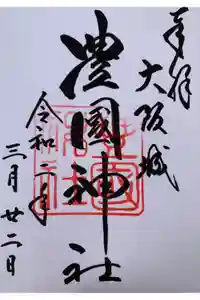 奉拝
大阪城
豊國神社
令和二年
三月廿二日